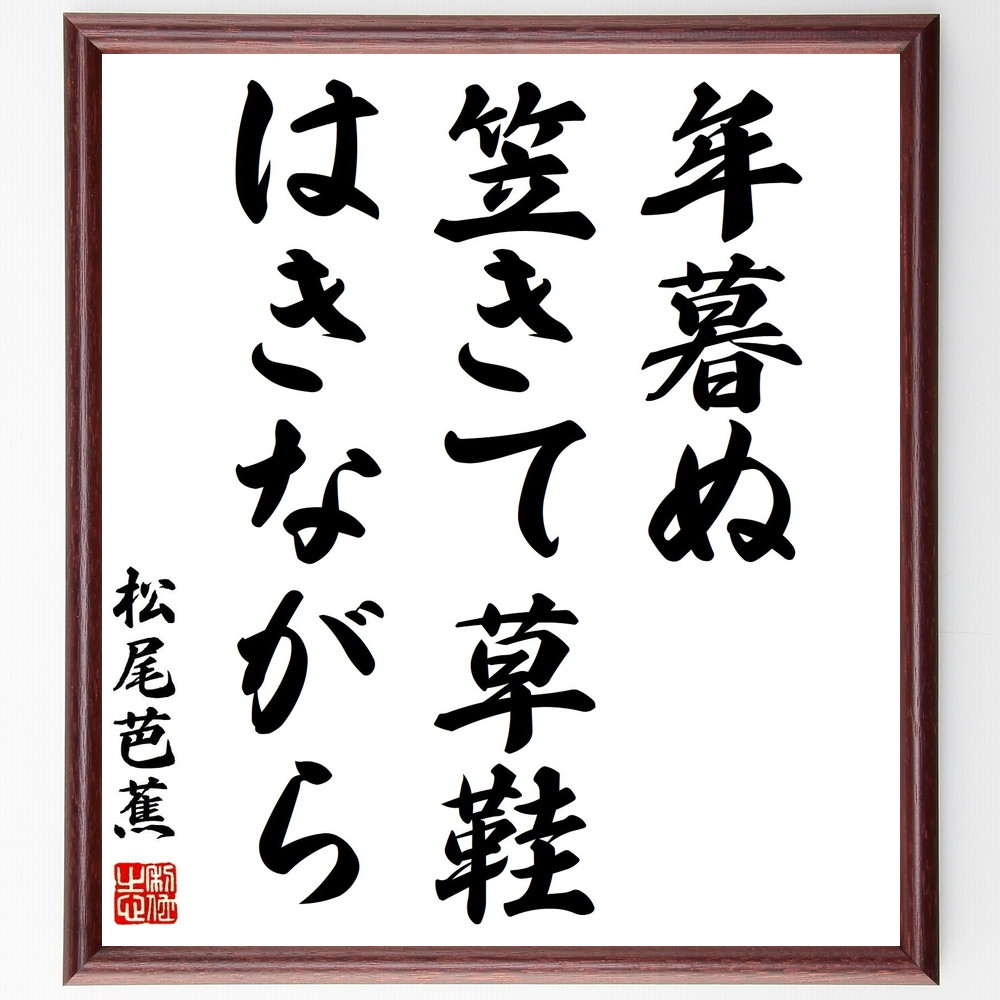 年暮ぬ
笠きて草鞋
はきながら
松尾芭蕉